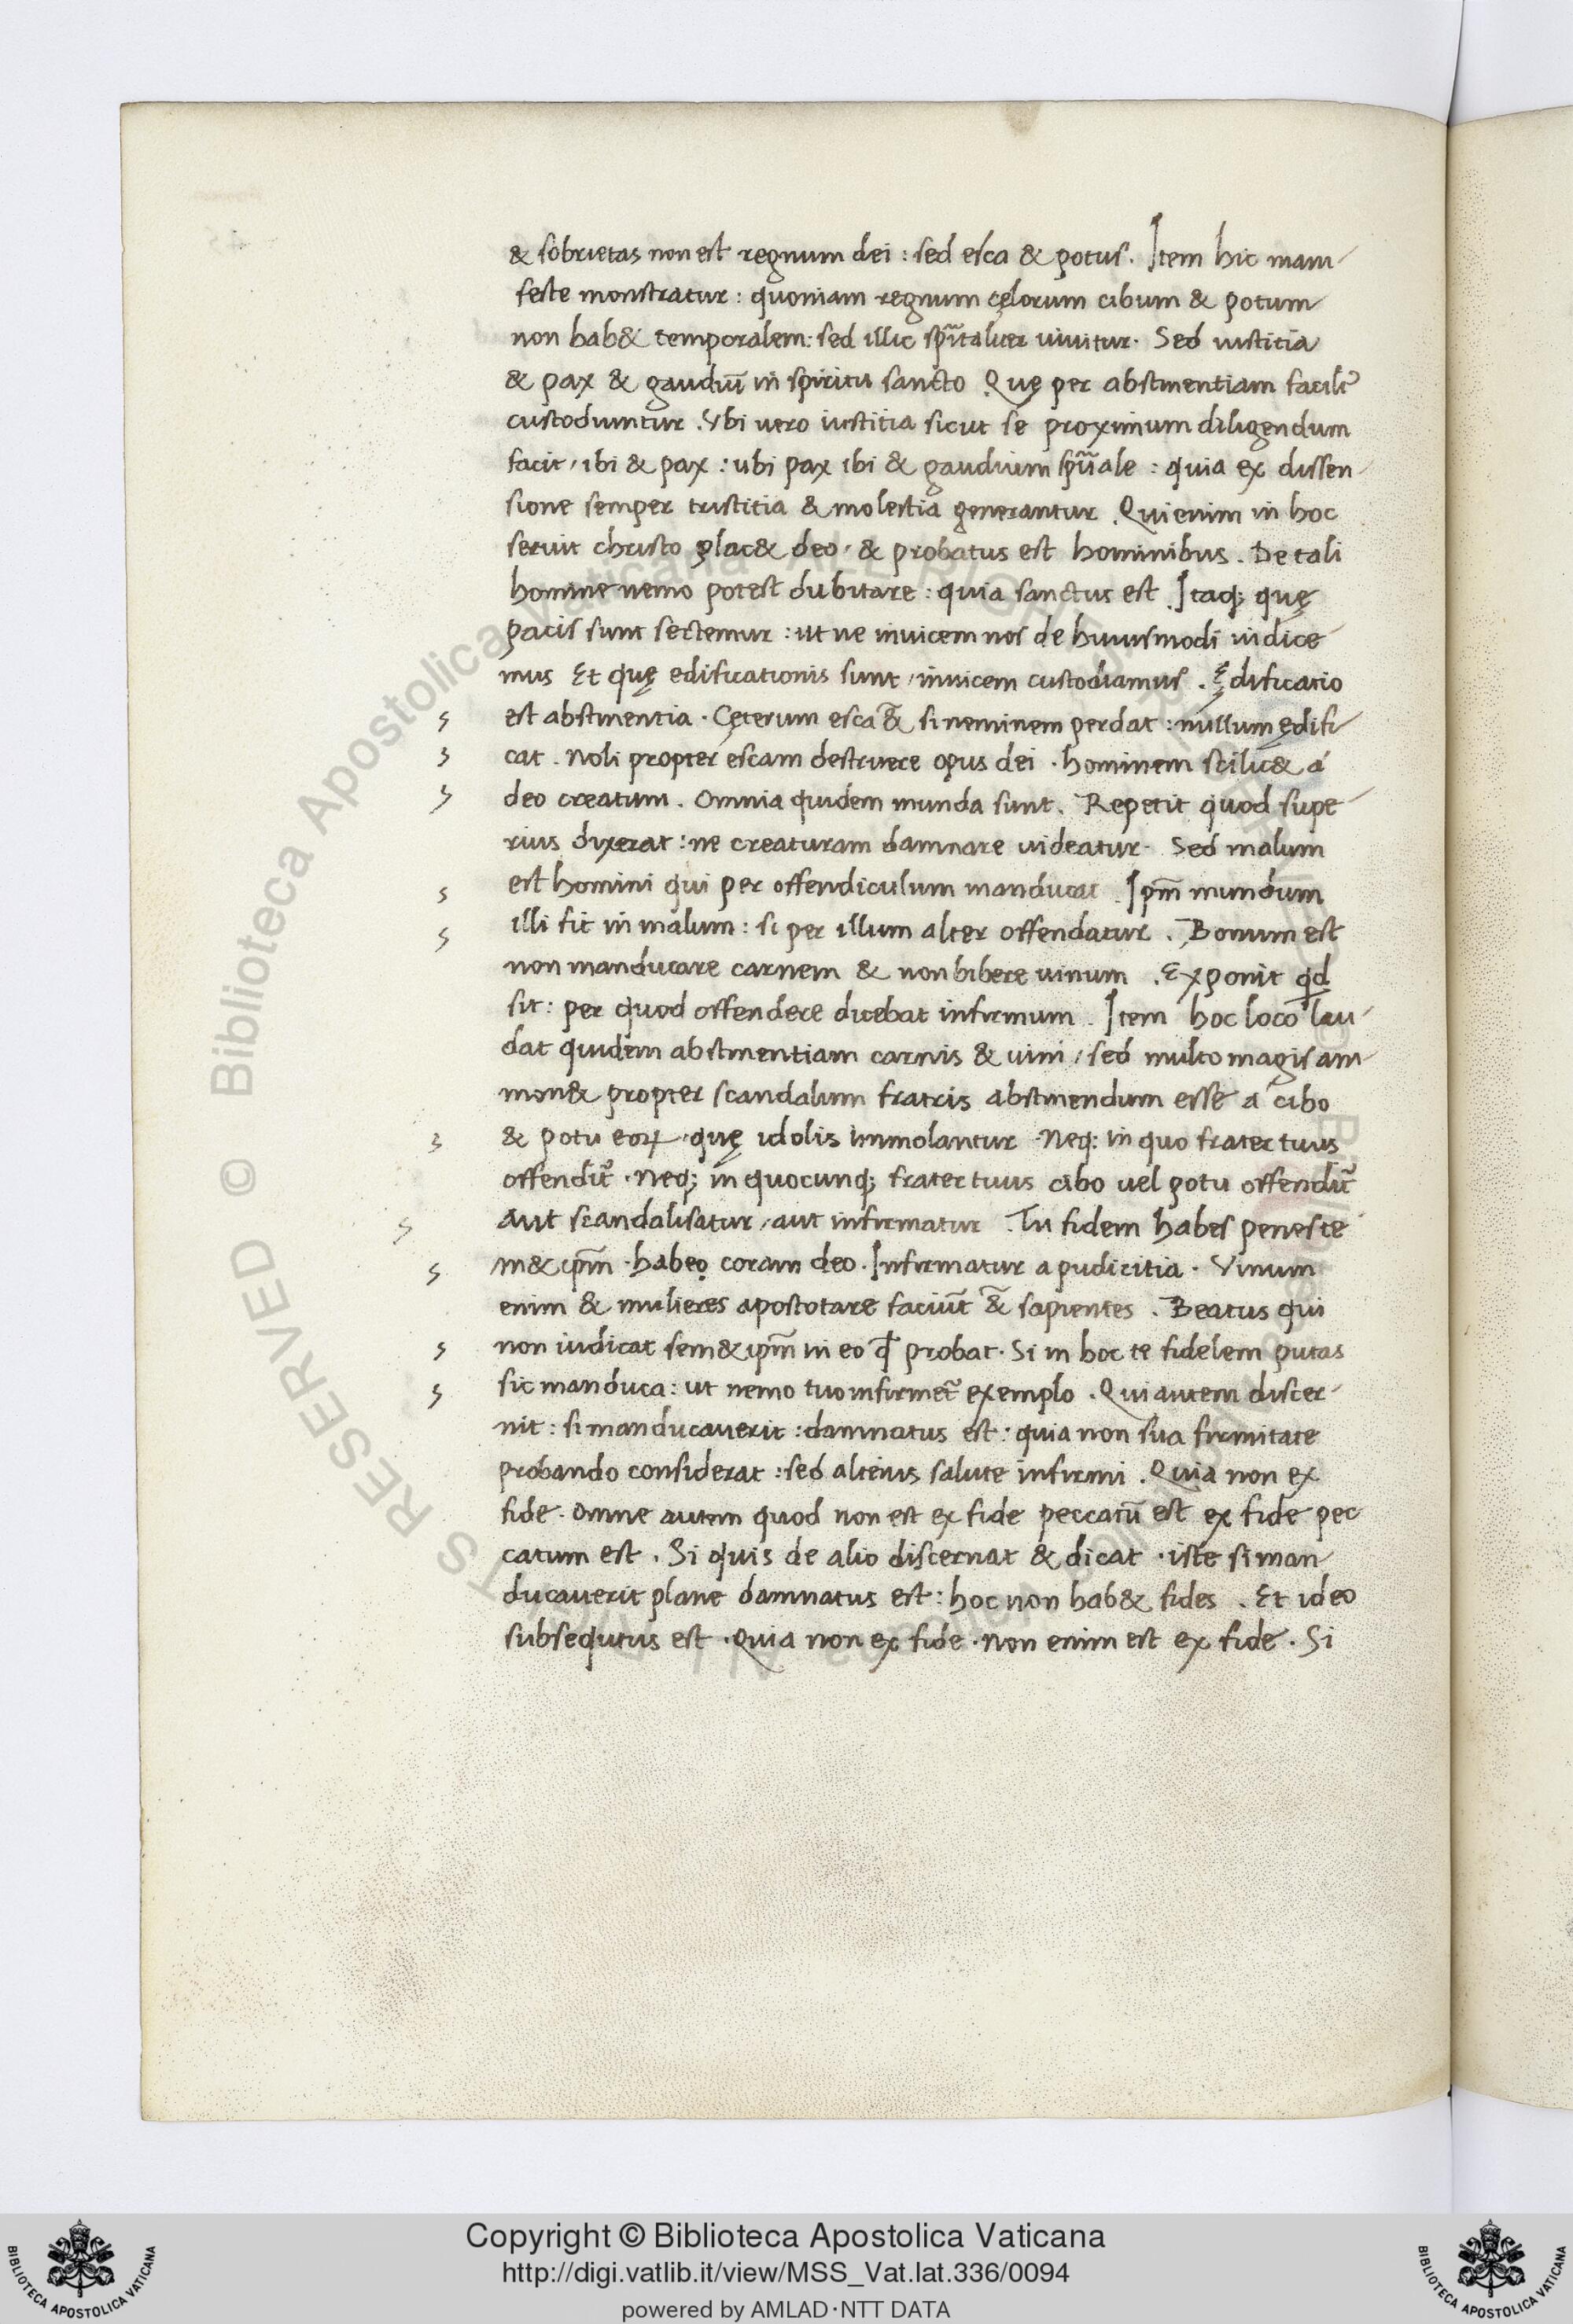 & sobrietas non est regnum dei : sed esca & potus. Item hic mani-
feste monstratur : quoniam regnum cęlorum cibum & potum
non hab& temporalem : sed illic spῑtaliter uiuitur. Sed iustitia
& pax & gaudiū in spiritu sancto. Quę per abstinentiam facilr̄
custodiuntur. Vbi uero iustitia sicut se proximum diligendum
facit / ibi & pax : ubi pax ibi & gaudium spūale : quia ex dissen-
sione semper tristitia & molestia generantur. Qui enim in hoc
seruit christo plac& deo / & probatus est hominibus. De tali
homine nemo potest dubitare : quia sanctus est. Itaq; quę
pacis sunt sectemur : ut ne inuicem nos de huiusmodi iudice-
mus Et quę edificationis sunt / inuicem custodiamus. Ędificatio
est abstinentia. Cęterum esca &̄ si neminem perdat : nullum ędifi-
cat. Noli propter escam destruere opus dei. hominem scilic& á
deo creatum. Omnia quidem munda sunt. Repetit quod supe-
rius dixerat : ne creaturam damnare uideatur. Sed malum
est homini qui per offendiculum manducat. Ipm̄ mundum
illi fit in malum : si per illum alter offendatur. Bonum est
non manducare carnem & non bibere uinum. Exponit qd
sit : per quod offendere dicebat infirmum. Item hoc loco lau-
dat quidem abstinentiam carnis & uini / sed multo magis am-
mon& propter scandalum fratris abstinendum esse á cibo
& potu eoꝝ quę idolis immolantur. Neq; in quo frater tuus
offendit̄. Neq; in quocunq; frater tuus cibo uel potu offendit̄
aut scandalisatur / aut infirmatur. Tu fidem habes penes te
m&ipm̄. habeo coram deo. Infirmatur a pudicitia. Vinum
enim & mulieres apostotare faciūt &̄ sapientes. Beatus qui
non iudicat sem&ipm̄ in eo qđ probat. Si in hoc te fidelem putas
sic manduca : ut nemo tuo infirmet̄ exemplo. Qui autem discer-
nit : si manducauerit : damnatus est : quia non sua firmitate
probando considerat : sed alteius salute infirmi. Quia non ex
fide. Omne autem quod non est ex fide peccatū est ex fide pec
catum est. Si quis de alio discernat & dicat. iste si man-
ducauerit plane damnatus est : hoc non hab& fides. Et ideo
subsequtus est. Quia non ex fide. Non enim est ex fide. Si
Copyright © Biblioteca Apostolica Vaticana
http://digi.vatlib.it/view/MSS_Vat.lat.336/0094
powered by AMLAD·NTT DATA